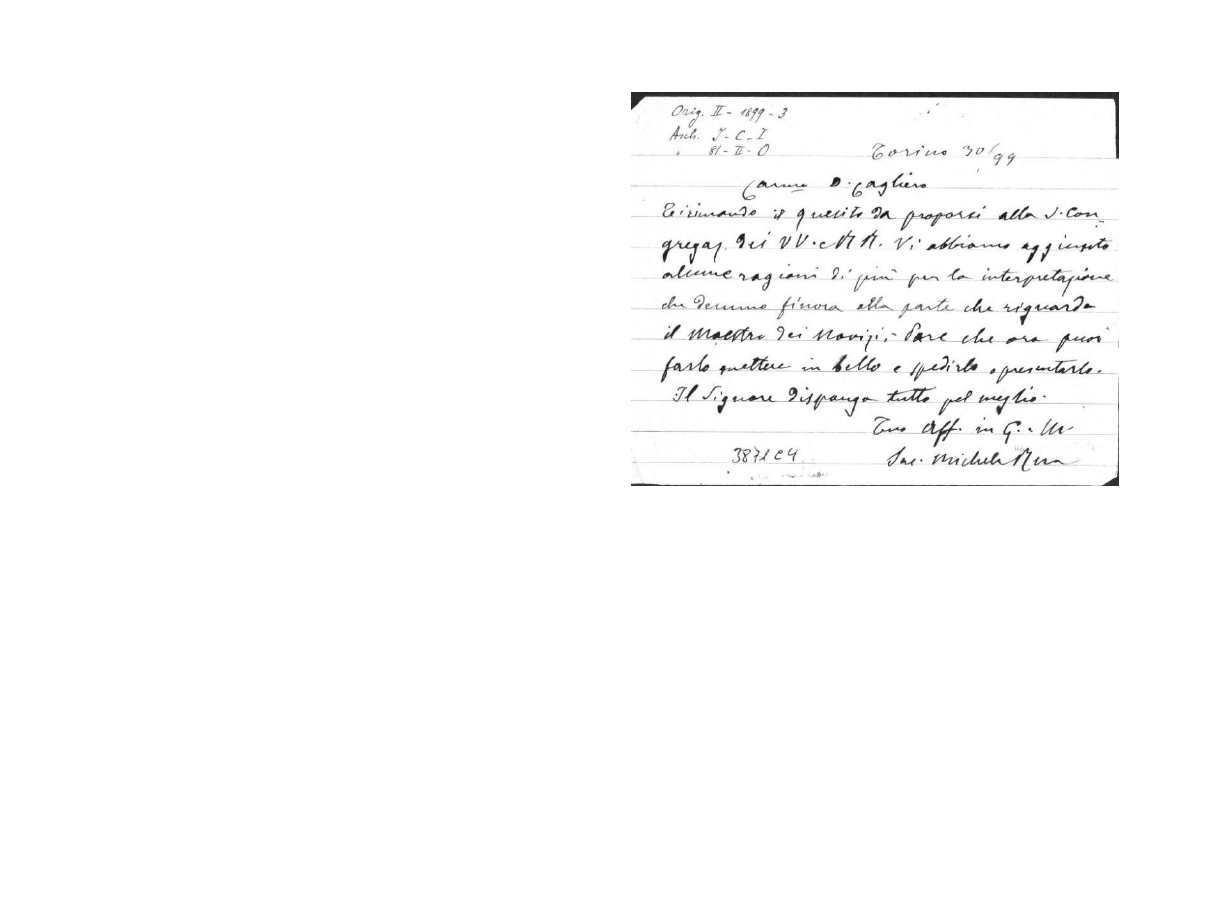 Orig. II - 1899 - 3
Arch. I - C - I
" 81 - II - O
Torino 30/99
Car.mo D. Cagliero
Ti rimando il quesito da proporsi alla S. Con-
gregaz. dei VV. e RR. Vi abbiamo aggiunto
alcune ragioni di più per la interpretazione
che demmo finora alla parte che riguarda
il Maestro dei Novizi.- Pare che ora puoi
farlo mettere in bello e spedirlo o presentarlo.
Il Signore disponga tutto pel meglio.
Tuo Aff. in G. e M.
Sac. Michele Rua
3871 C4